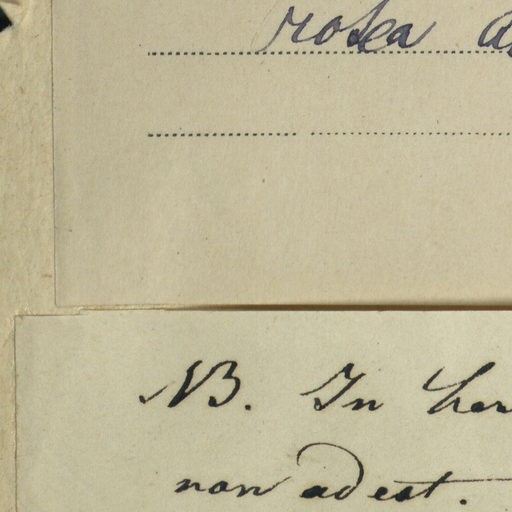 rosea
NB. In
non adest.